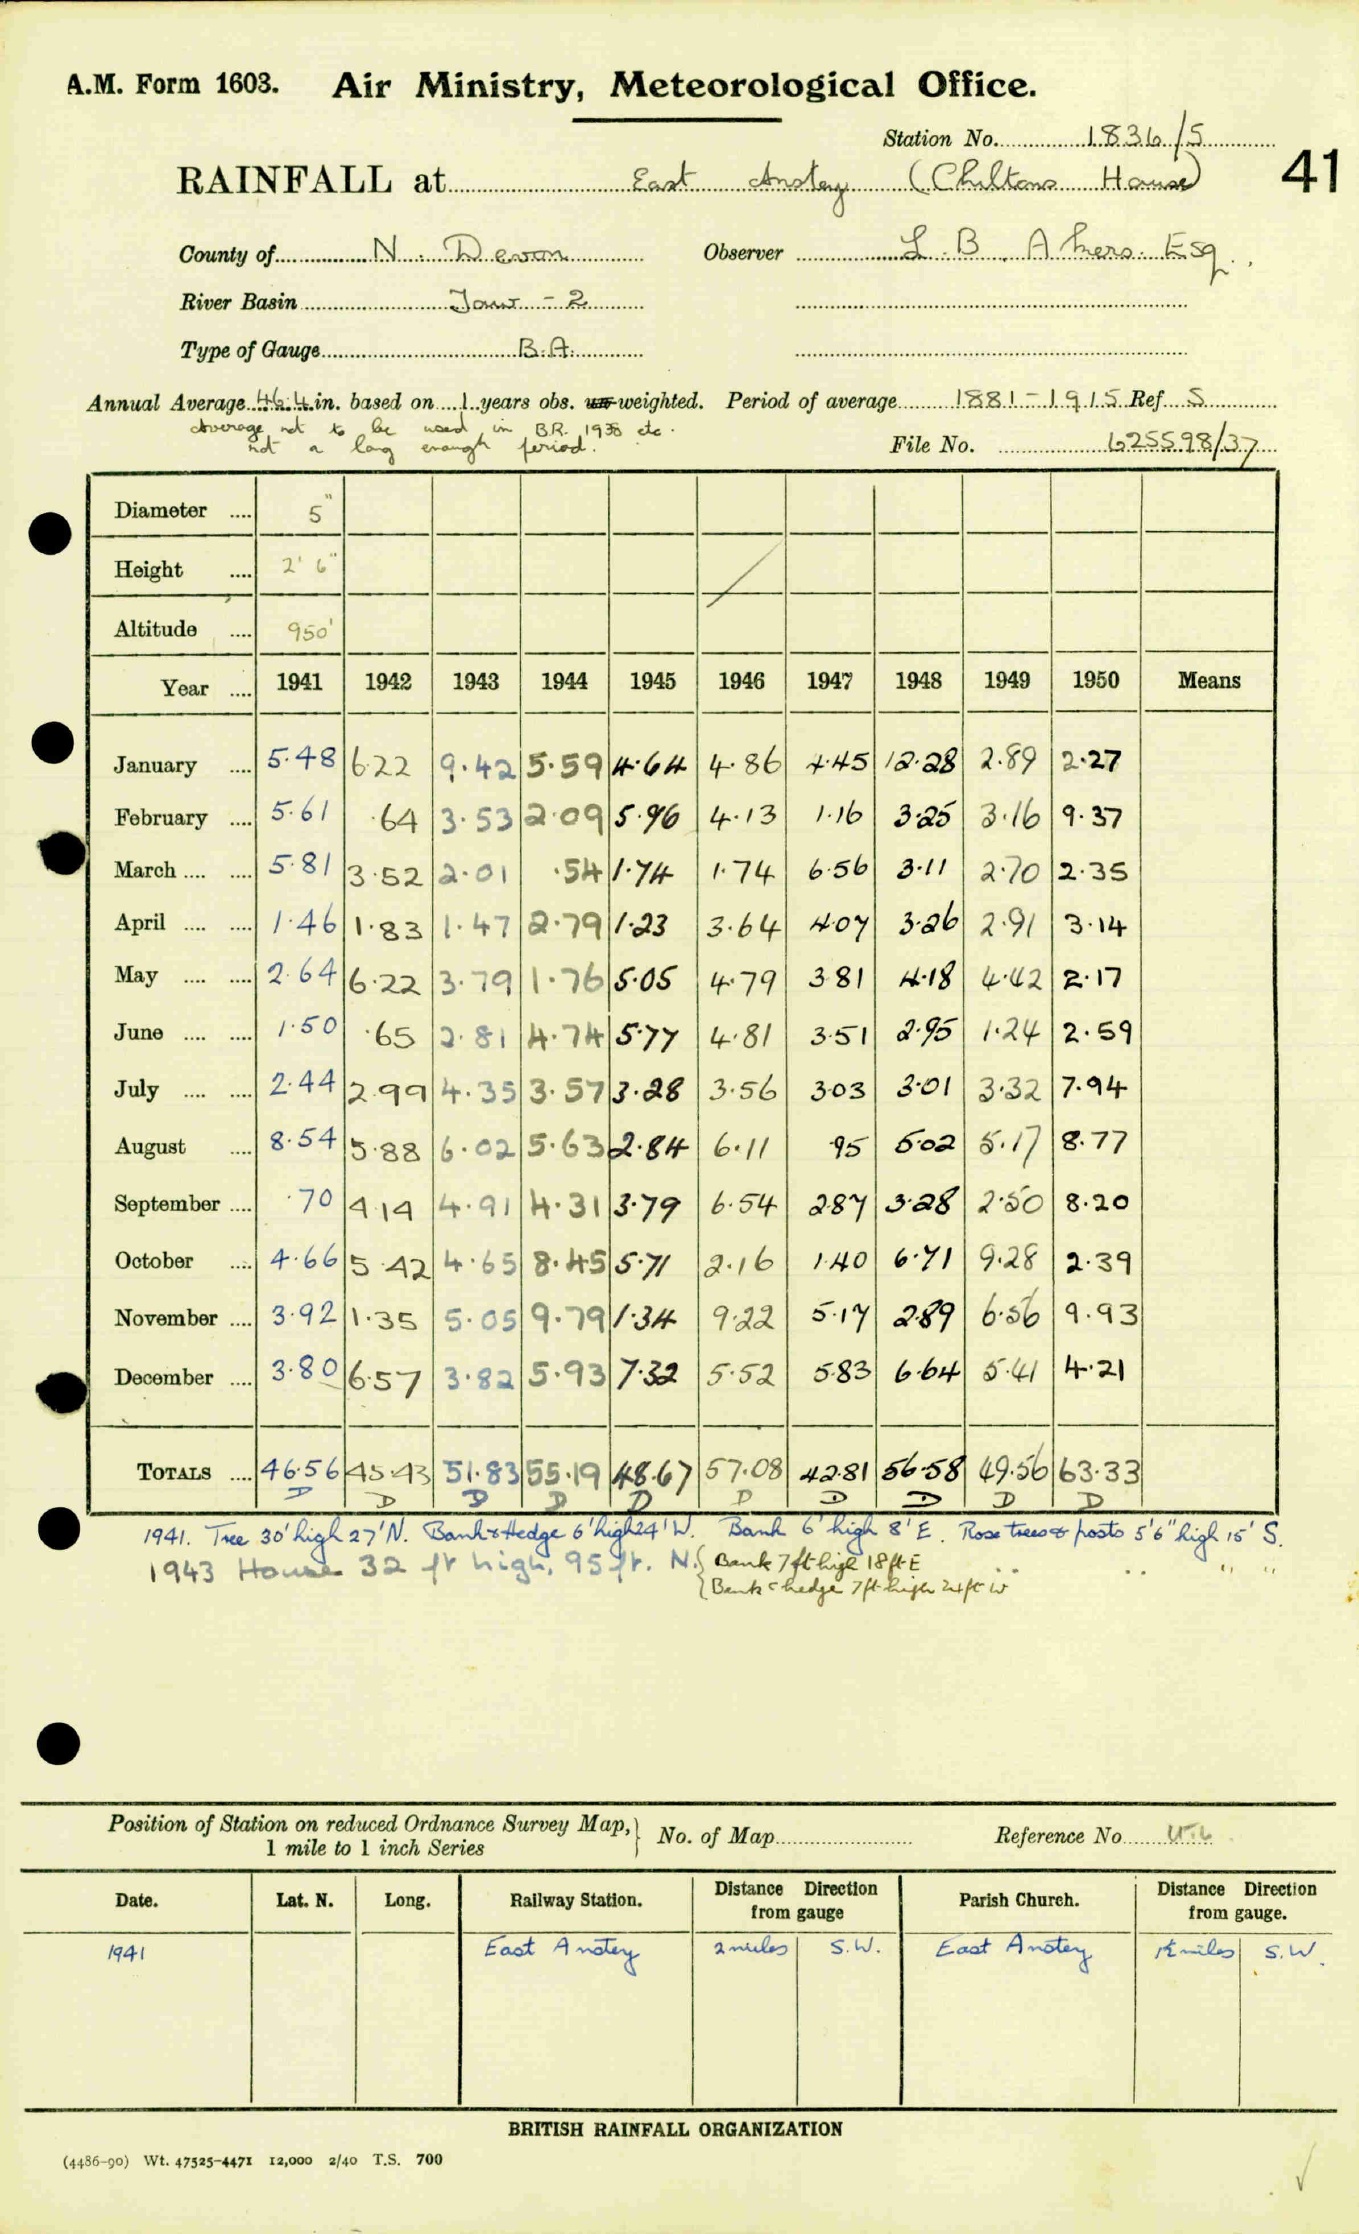 A.M. Form 1603. Air Ministry, Meteorological Office.
Station No. 1836/5
41
RAINFALL at East Anstey (Chiltons House)
County of N. Devon Observer L. B. Akers. Esq.
River Basin Taw - 2
Type of Gauge B.A.
Annual Average 46.4 in. based on 1 years obs. weighted. Period of average 1881-1915 Ref S
Average not to be used in B.R. 1938 etc.
not a long enough period.
File No. 625598/37
Diameter .... 5"
Height .... 2' 6"
Altitude .... 950'
Year .... 1941 1942 1943 1944 1945 1946 1947 1948 1949 1950 Means
January .... 5.48 6.22 9.42 5.59 4.64 4.86 4.45 12.28 2.89 2.27
February .... 5.61 .64 3.53 2.09 5.96 4.13 1.16 3.25 3.16 9.37
March .... .... 5.81 3.52 2.01 .54 1.74 1.74 6.56 3.11 2.70 2.35
April .... .... 1.46 1.83 1.47 2.79 1.23 3.64 4.07 3.26 2.91 3.14
May .... .... 2.64 6.22 3.79 1.76 5.05 4.79 3.81 4.18 4.42 2.17
June .... .... 1.50 .65 2.81 4.74 5.77 4.81 3.51 2.95 1.24 2.59
July .... .... 2.44 2.99 4.35 3.57 3.28 3.56 3.03 3.01 3.32 7.94
August .... 8.54 5.88 6.02 5.63 2.84 6.11 .95 5.02 5.17 8.77
September .... .70 4.14 4.91 4.31 3.79 6.54 2.87 3.28 2.50 8.20
October .... 4.66 5.42 4.65 8.45 5.71 2.16 1.40 6.71 9.28 2.39
November .... 3.92 1.35 5.05 9.79 1.34 9.22 5.17 2.89 6.56 9.93
December .... 3.80 6.57 3.82 5.93 7.32 5.52 5.83 6.64 5.41 4.21
TOTALS .... 46.56 45.43 51.83 55.19 48.67 57.08 42.81 56.58 49.56 63.33
D D D D D D D D D D
1941. Tree 30' high 27' N. Bank & Hedge 6' high 24' W. Bank 6' high 8' E. Rose trees & posts 5' 6" high 15' S.
1943 House 32 ft high, 95 ft. N. { Bank 7 ft high 18 ft E " " " "
{ Bank & hedge 7 ft high 24 ft W
Position of Station on reduced Ordnance Survey Map,
1 mile to 1 inch Series } No. of Map Reference No.
Date. Lat. N. Long. Railway Station. Distance Direction from gauge Parish Church. Distance Direction from gauge.
1941 East Anstey 2 miles S.W. East Anstey 1½ miles S.W.
BRITISH RAINFALL ORGANIZATION
(4486-90) Wt. 47525-4471 12,000 2/40 T.S. 700